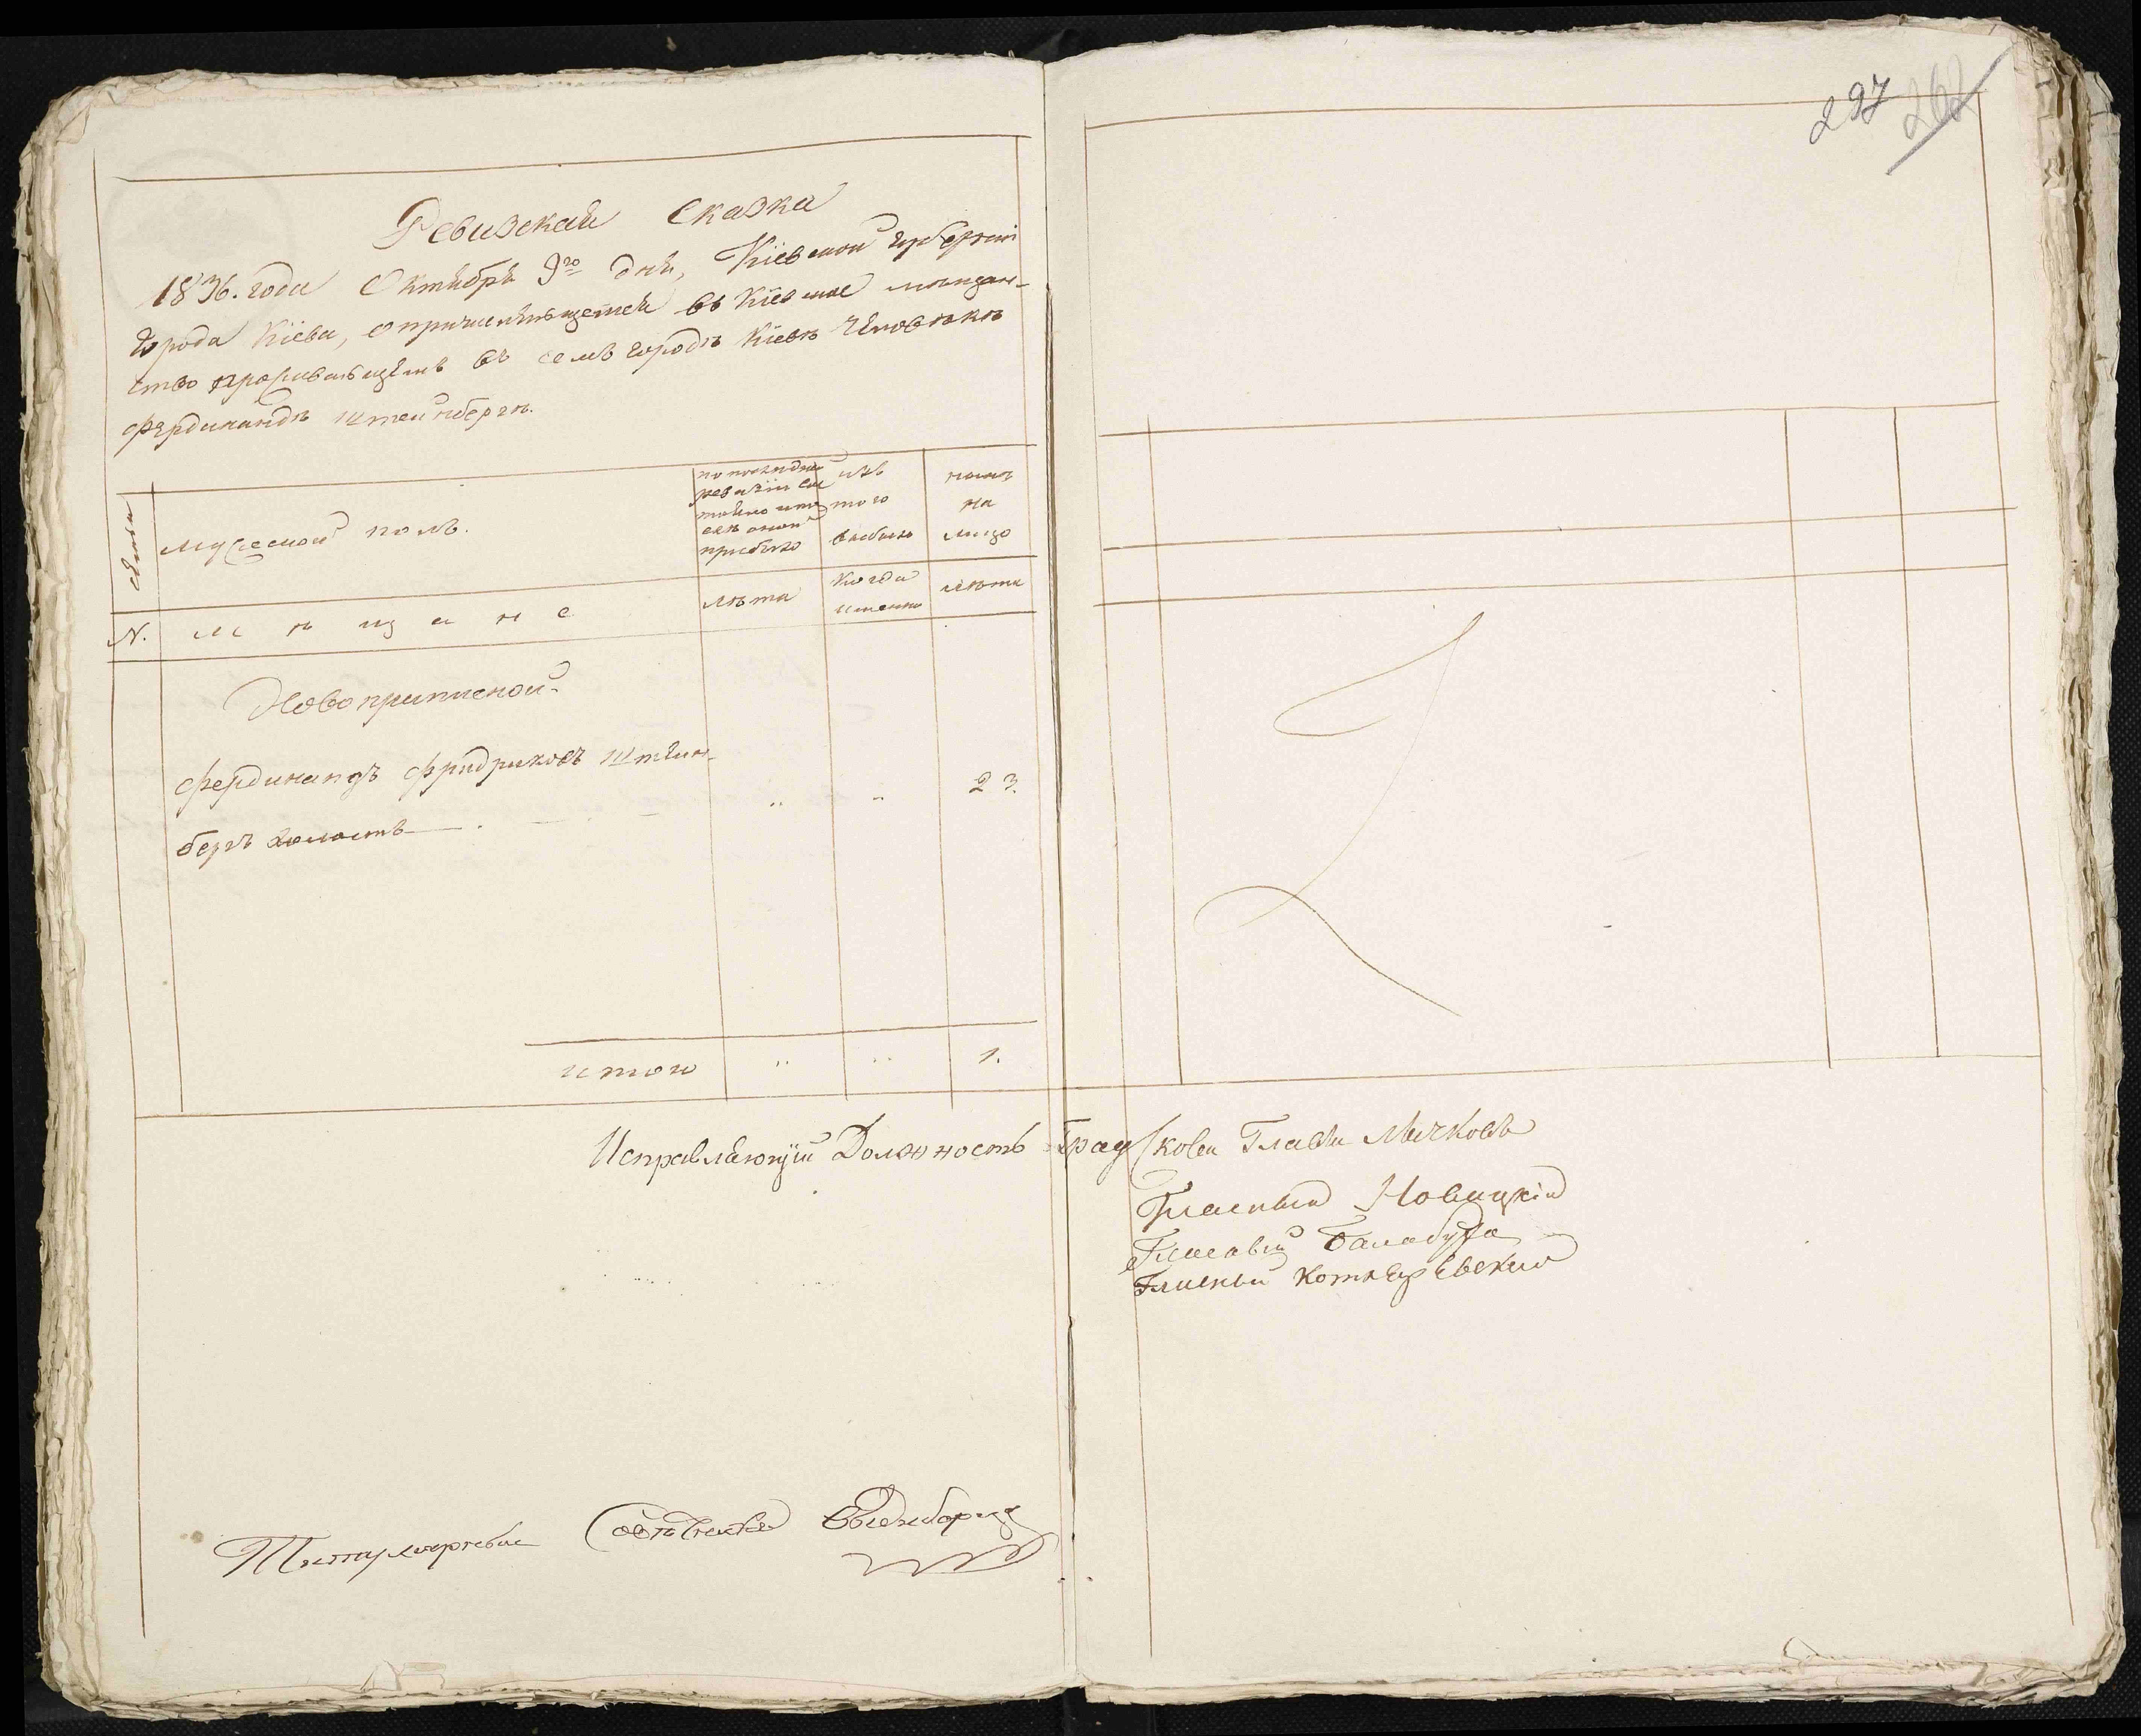 297 262
Ревизская Сказка
1836. года Октября 9го дня, Кіевской губерніи
города Кіева, о причислившемся въ Кіевское мѣщан-
ство проживающемъ въ семъ городѣ Кіевѣ человѣкѣ
Фердинандѣ Штейнбергѣ.
семьи
Мужеской полъ.
по последней ревизіи со-
стояло или после оной
прибыло
изъ того выбыло
нынѣ на лицо
N.
мѣщане
лѣта
когда именно
лѣта
Новоприписной
Фердинандъ Фридриховъ Штейн-
бергъ холостъ 23.
итого 1.
Исправляющій Должность Градской Главы Мычковъ
Гласный Новицкій
Гласный Балабуха
Гласный Котляревскій